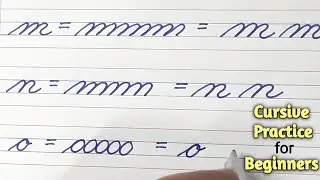 m = mmmm = m m
n = mmm = n n
o = ooooo = o
Cursive
Practice
for
Beginners